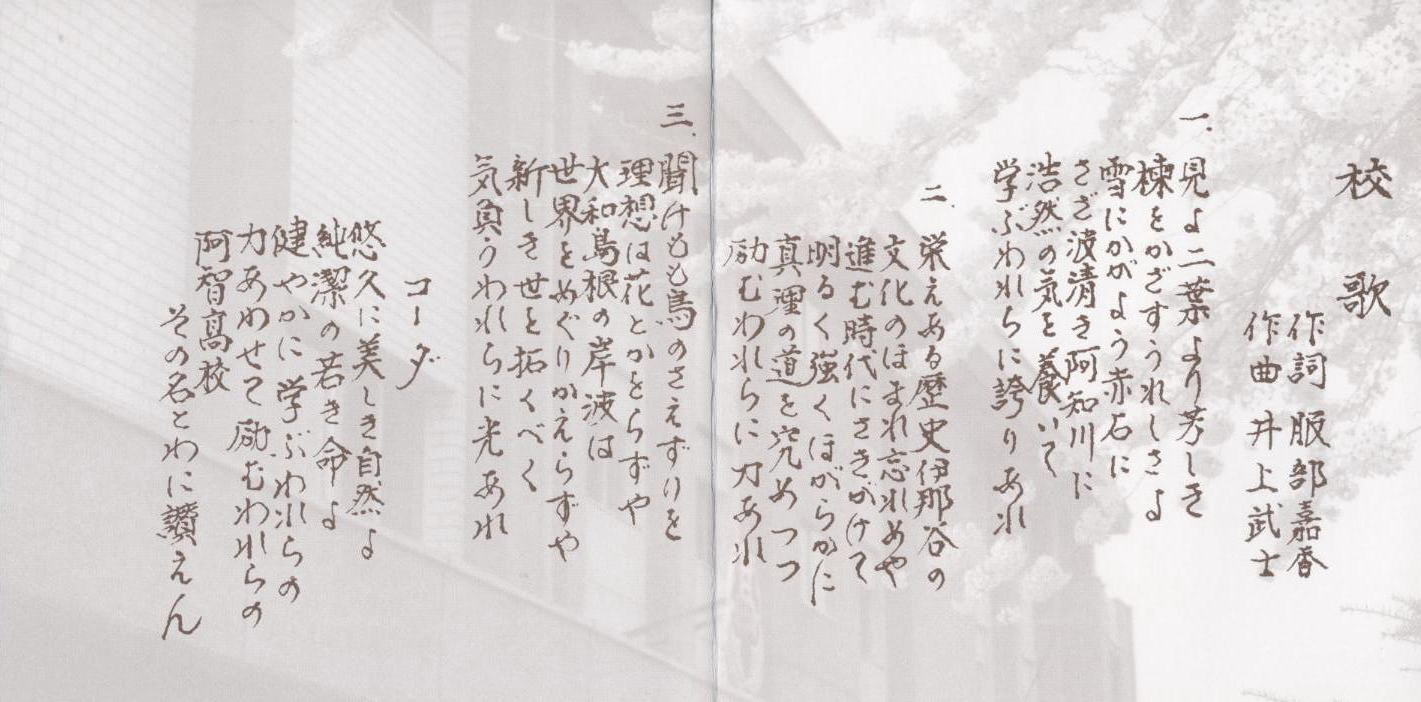 校歌
作詞 服部嘉香
作曲 井上武士
一、
見よ二葉より芳しき
棟をかざすうれしさよ
雪にかがよう赤石に
さざ波清き阿知川に
浩然の気を養いて
学ぶわれらに誇りあれ
二、
栄えある歴史伊那谷の
文化のほまれ忘れめや
進む時代にさきがけて
明るく強くほがらかに
真理の道を究めつつ
励むわれらに力あれ
三、
聞けもも鳥のさえずりを
理想は花とかをらずや
大和島根の岸波は
世界をめぐりかえらずや
新しき世を拓くべく
気負うわれらに光あれ
コーダ
悠久に美しき自然よ
純潔の若き命よ
健やかに学ぶわれらの
力あわせて励むわれらの
阿智高校
その名とわに讃えん